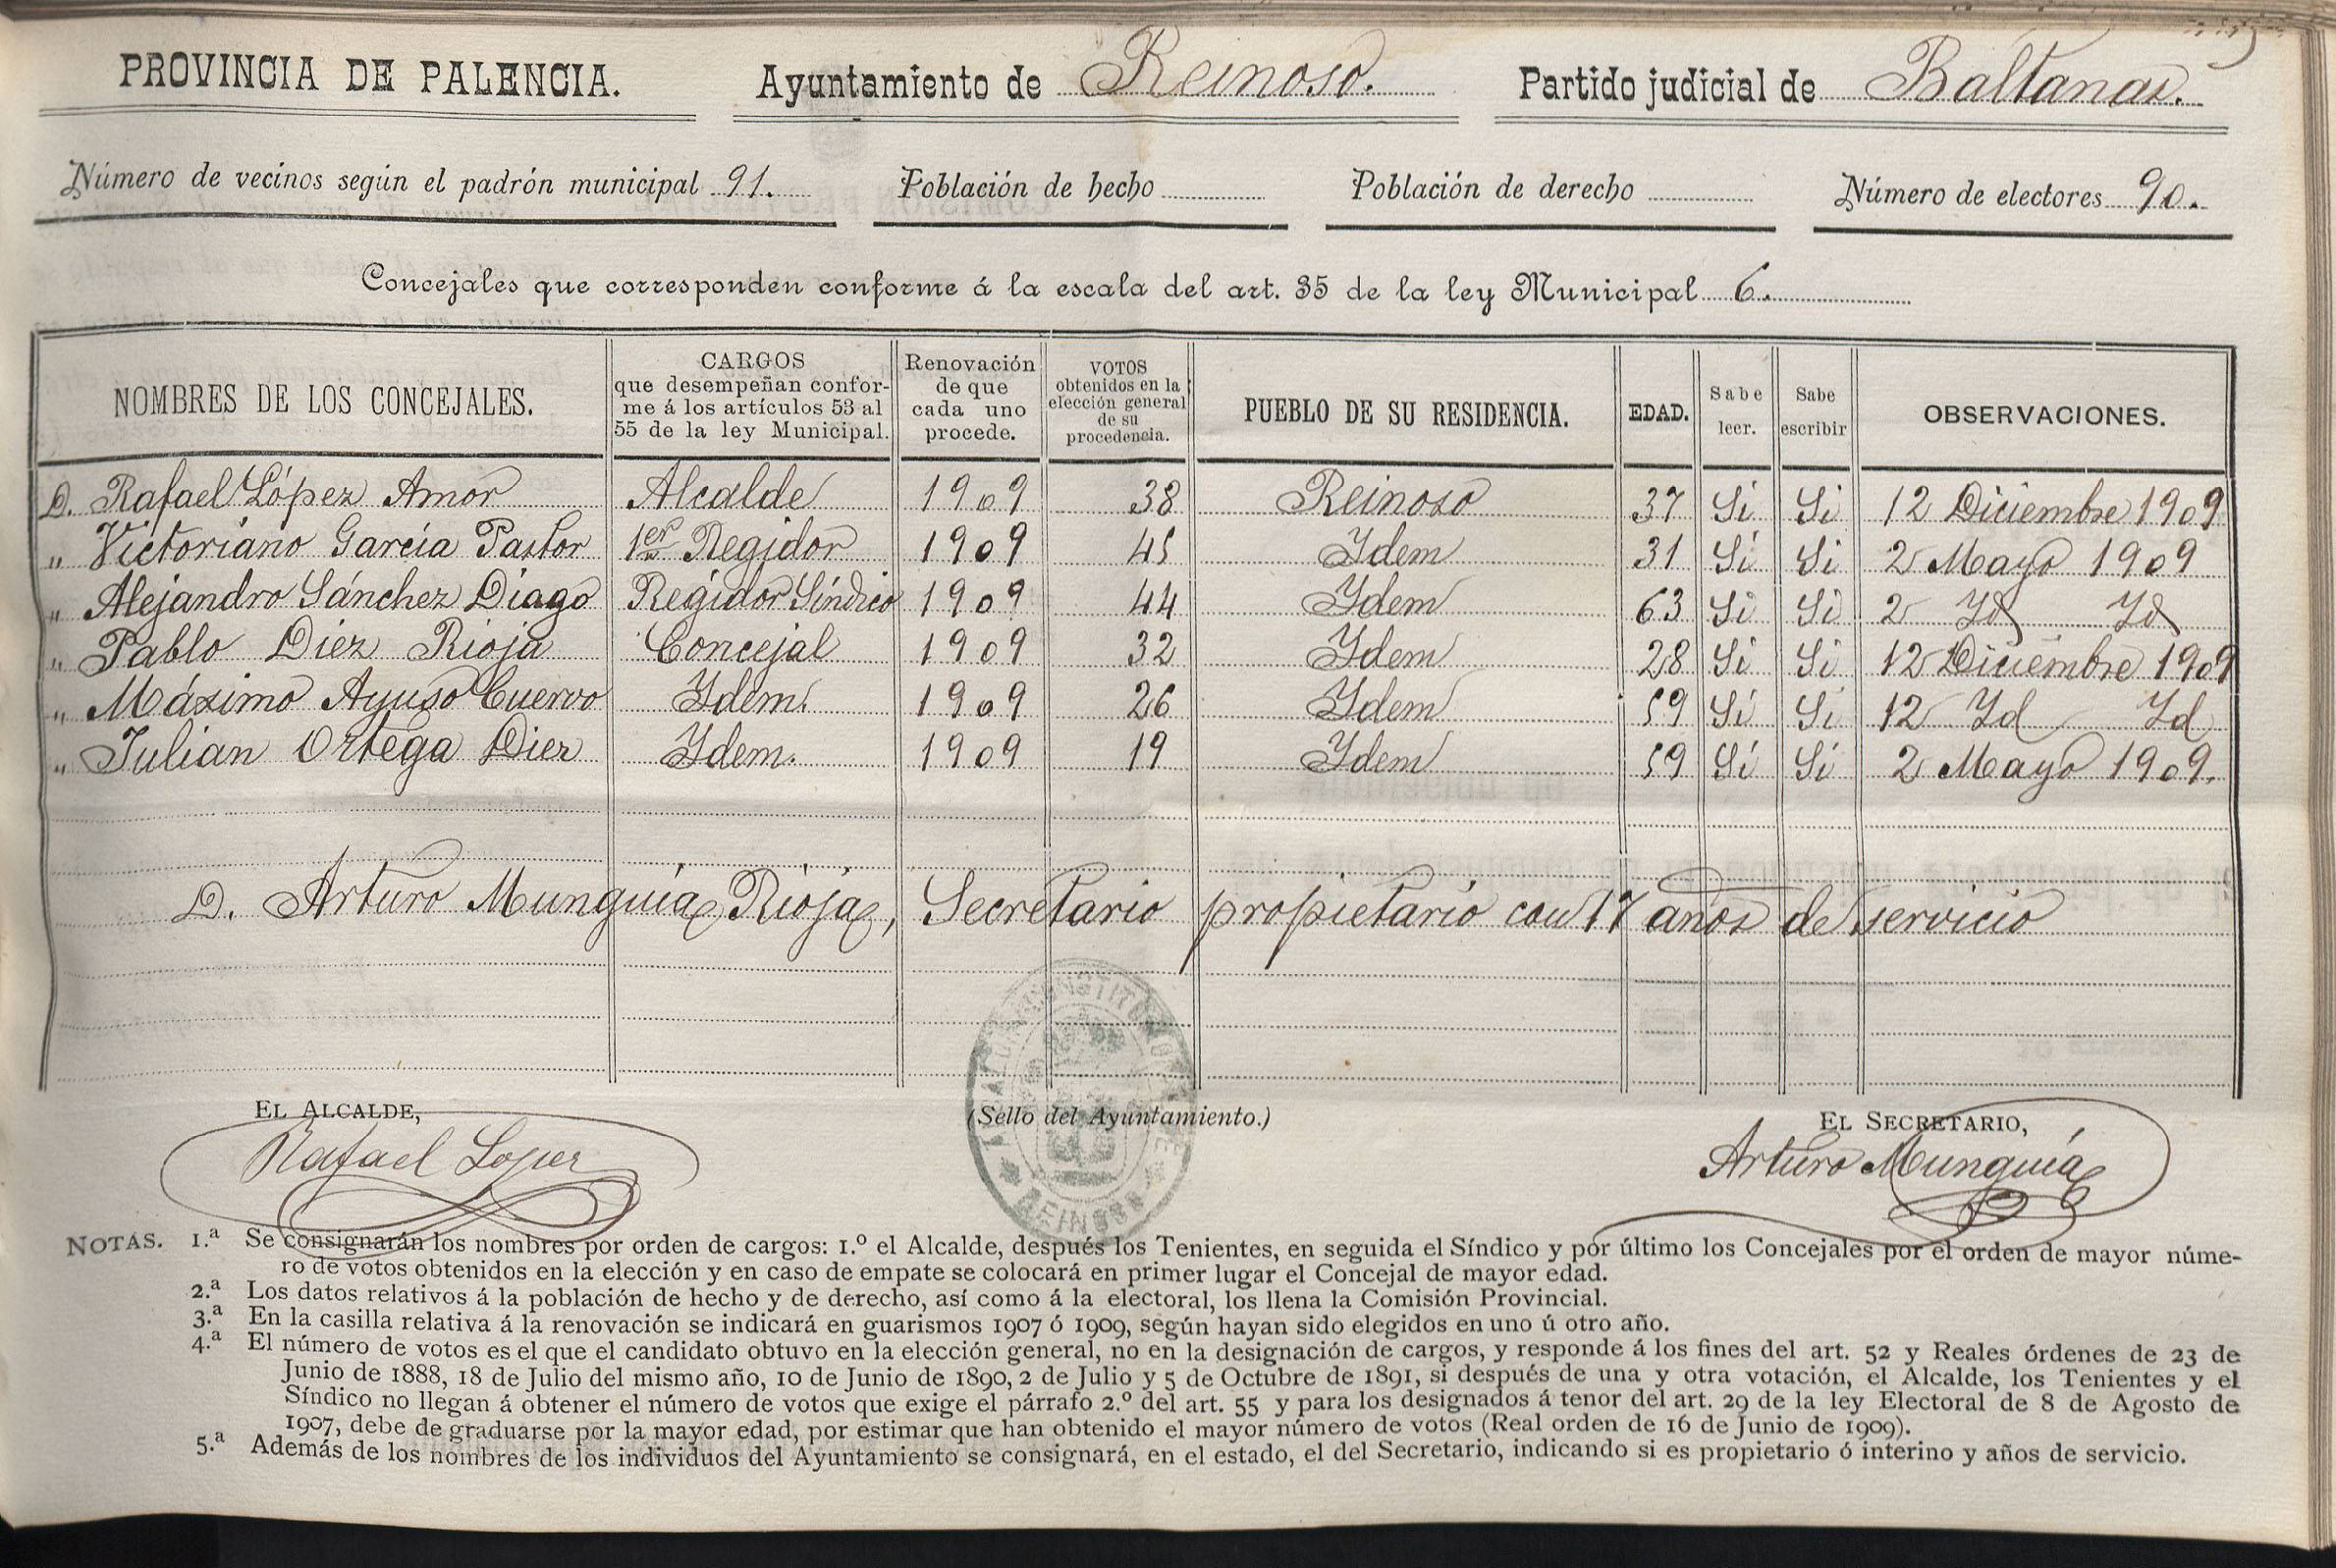 PROVINCIA DE PALENCIA. Ayuntamiento de Reinoso. Partido judicial de Baltanas.
Número de vecinos según el padrón municipal 91. Población de hecho Población de derecho Número de electores 90.
Concejales que corresponden conforme á la escala del art. 35 de la ley Municipal 6.
NOMBRES DE LOS CONCEJALES.
CARGOS
que desempeñan confor-
me á los artículos 53 al
55 de la ley Municipal.
Renovación
de que
cada uno
procede.
VOTOS
obtenidos en la
elección general
de su
procedencia.
PUEBLO DE SU RESIDENCIA.
EDAD.
Sabe
leer.
Sabe
escribir
OBSERVACIONES.
D. Rafael López Amor Alcalde 1909 38 Reinoso 37 Si Si 12 Diciembre 1909
„ Victoriano García Pastor 1er Regidor 1909 45 Ydem 31 Si Si 2 Mayo 1909
„ Alejandro Sánchez Diago Regidor Síndico 1909 44 Ydem 63 Si Si 2 Yd Yd
„ Pablo Diez Rioja Concejal 1909 32 Ydem 28 Si Si 12 Diciembre 1909
„ Máximo Ayuso Cuervo Ydem 1909 26 Ydem 59 Si Si 12 Yd Yd
„ Julian Ortega Diez Ydem. 1909 19 Ydem 59 Si Si 2 Mayo 1909.
D. Arturo Munguía Rioja, Secretario propietario con 17 años de servicio
EL ALCALDE,
Rafael Lopez
(Sello del Ayuntamiento.)
EL SECRETARIO,
Arturo Munguía
REINOSO
NOTAS. 1.ª Se consignarán los nombres por orden de cargos: 1.º el Alcalde, después los Tenientes, en seguida el Síndico y por último los Concejales por el orden de mayor núme-
ro de votos obtenidos en la elección y en caso de empate se colocará en primer lugar el Concejal de mayor edad.
2.ª Los datos relativos á la población de hecho y de derecho, así como á la electoral, los llena la Comisión Provincial.
3.ª En la casilla relativa á la renovación se indicará en guarismos 1907 ó 1909, según hayan sido elegidos en uno ú otro año.
4.ª El número de votos es el que el candidato obtuvo en la elección general, no en la designación de cargos, y responde á los fines del art. 52 y Reales órdenes de 23 de
Junio de 1888, 18 de Julio del mismo año, 10 de Junio de 1890, 2 de Julio y 5 de Octubre de 1891, si después de una y otra votación, el Alcalde, los Tenientes y el
Síndico no llegan á obtener el número de votos que exige el párrafo 2.º del art. 55 y para los designados á tenor del art. 29 de la ley Electoral de 8 de Agosto de
1907, debe de graduarse por la mayor edad, por estimar que han obtenido el mayor número de votos (Real orden de 16 de Junio de 1909).
5.ª Además de los nombres de los individuos del Ayuntamiento se consignará, en el estado, el del Secretario, indicando si es propietario ó interino y años de servicio.